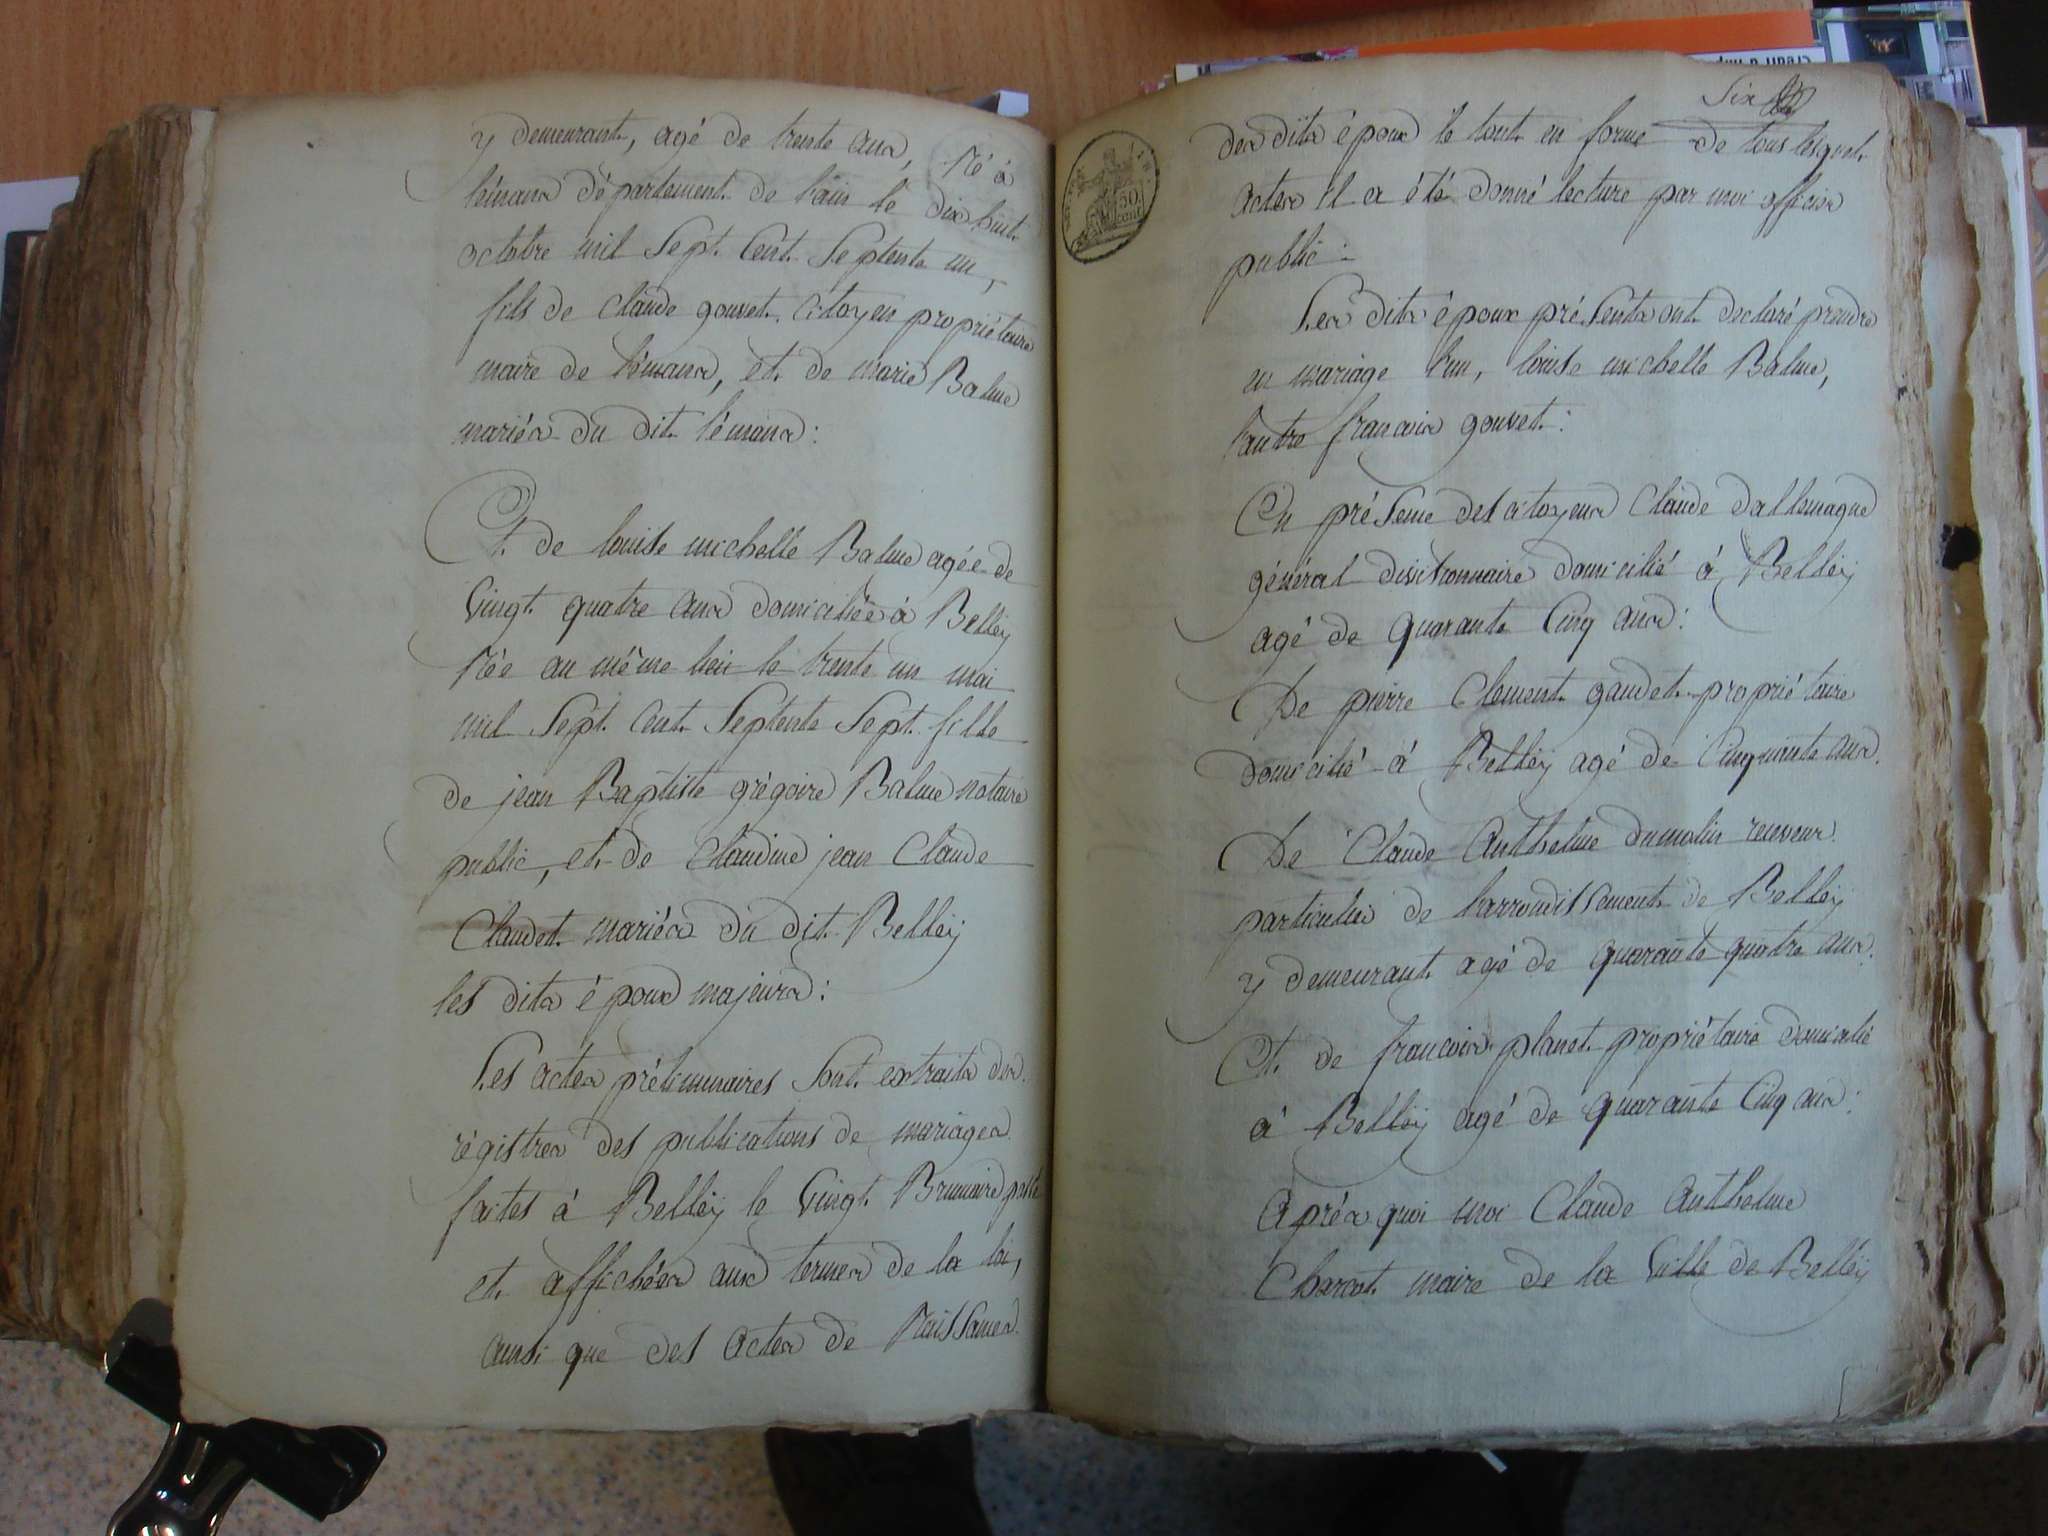 y demeurante, agé de trente ans, Né à
lémans département de l'ain le dix huit
octobre mil Sept Cent Septente un,
fils de Claude gouvet citoyen propriétaire
maire de lémans, et de marie Balme
mariés du dit lémans :
Et de louise michelle Balme agée de
Vingt quatre ans domiciliée à Belleÿ
Née au même lieu le trente un mai
mil Sept Cent Septente Sept fille
de jean Baptiste grégoire Balme notaire
public, et de Claudine jean Claude
Claudet mariés du dit Belleÿ
les dits époux majeurs :
Les actes préliminaires Sont extraits des
régistres des publications de mariages
faites à Belleÿ le Vingt Brumaire passé
et affichées aux termes de la loi,
ainsi que des actes de Naissances
Six
des dits époux le tout en forme de tous lesquels
actes il a été donné lecture par moi officier
public :
Les dits époux présents ont déclaré prendre
en mariage l'un, louise michelle Balme,
l'autre francois gouvet :
En présence des citoyens Claude dallemagne
général divisionnaire domicilié à Belleÿ
agé de quarante Cinq ans :
De pierre Clement gaudet propriétaire
domicilié à Belleÿ agé de Cinquante ans.
De Claude Anthelme dumolin receveur
particulier de l'arrondissement de Belleÿ
y demeurant agé de quarante quatre ans.
Et de francois planet propriétaire domicilié
à Belleÿ agé de quarante Cinq ans :
Après quoi moi Claude Anthelme
Charcot maire de la Ville de Belleÿ
50
cent